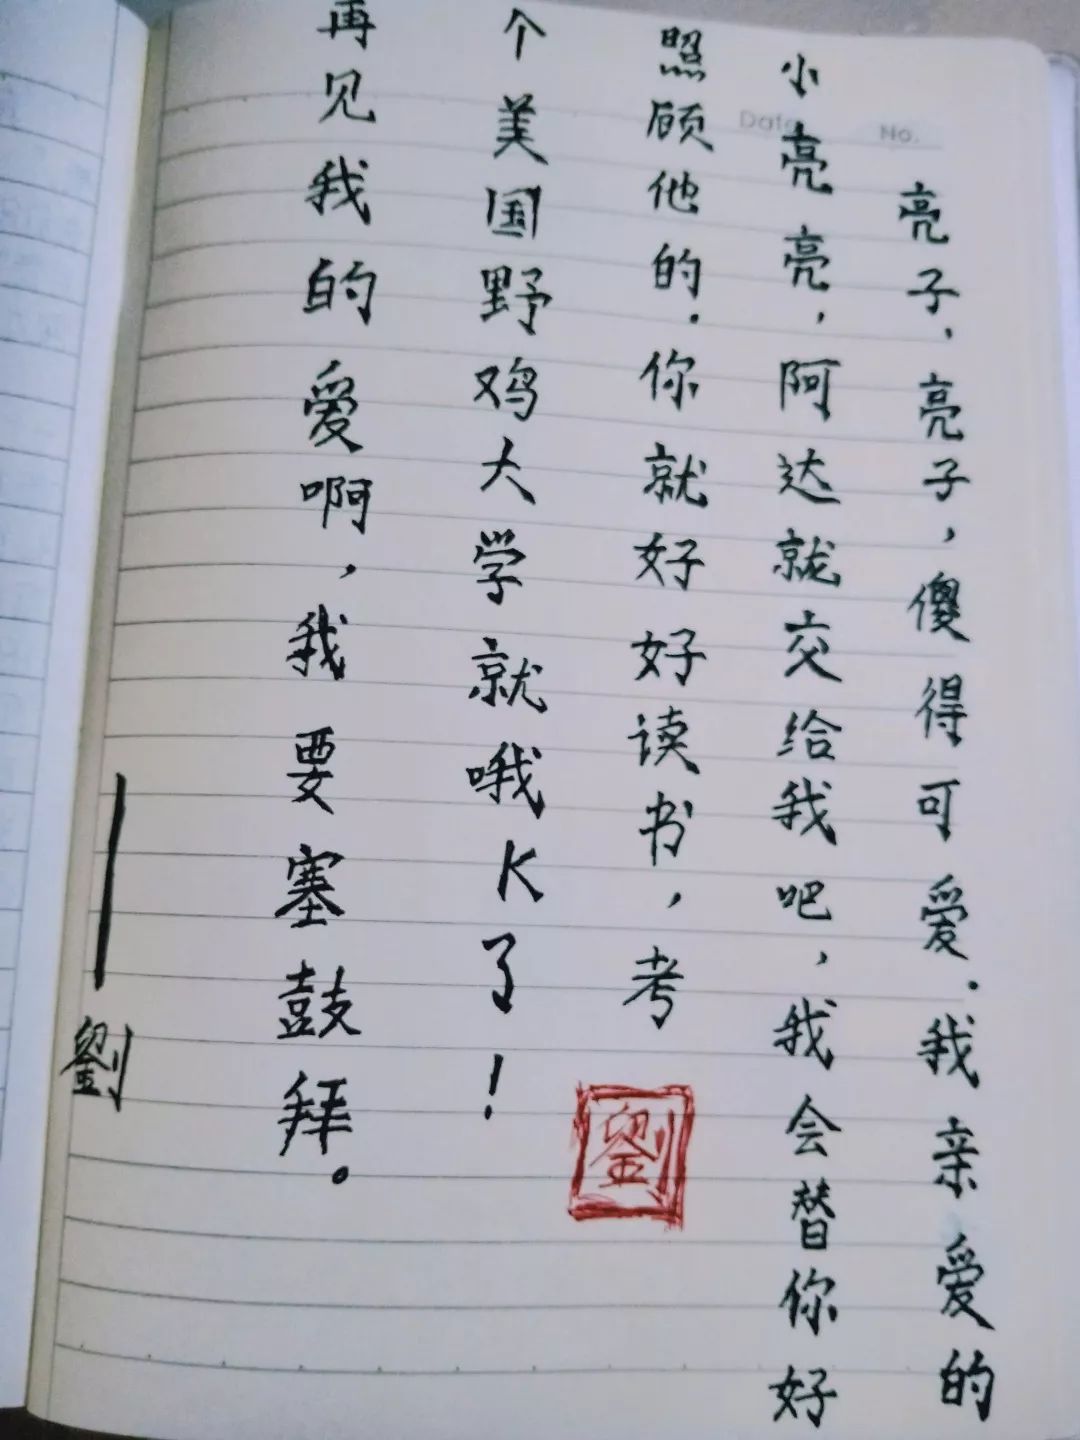 亮子、亮子，傻得可爱.我亲爱的
小亮亮，阿达就交给我吧，我会替你好
照顾他的.你就好好读书，考
个美国野鸡大学就哦K了！
再见我的爱啊，我要塞鼓拜。
劉
劉
Date
No.